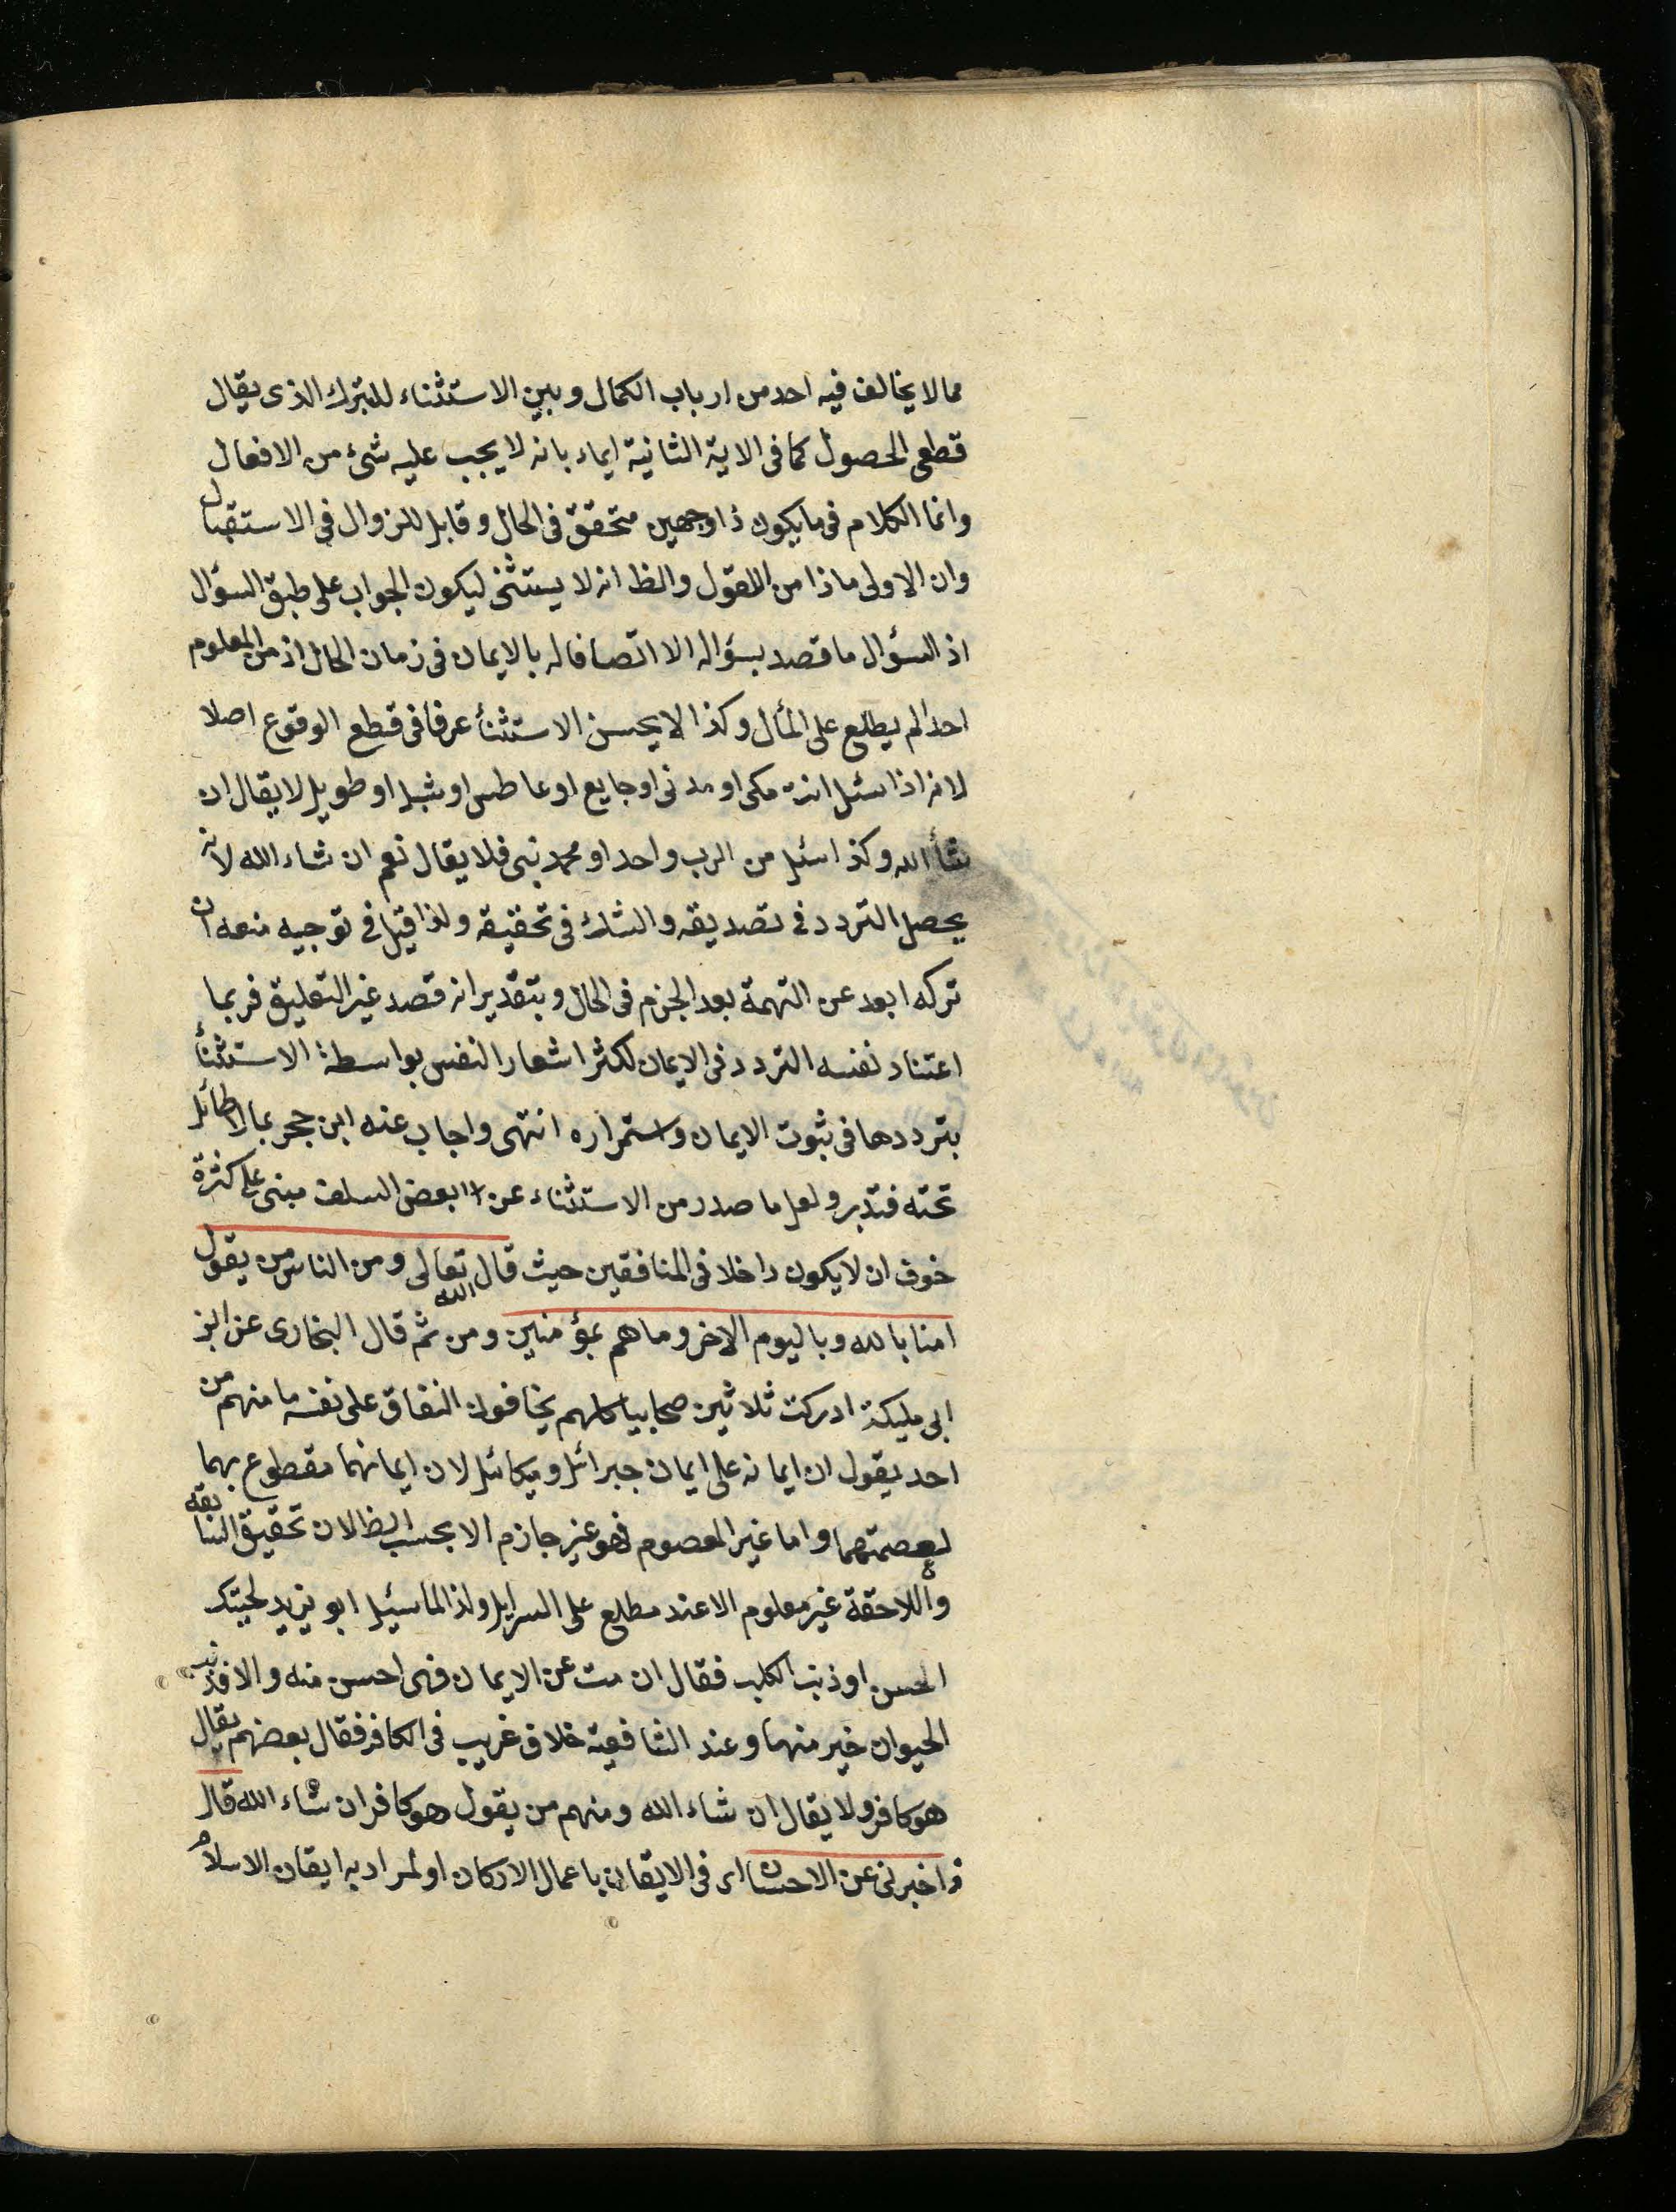 مما لا يخالف فيه احد من ارباب الكمال وبين الاستثناء للتبرك الذى يقال
قطعى الحصول كما فى الاية الثانية ايماء بانه لا يجب عليه شئ من الافعال
وانما الكلام فى ما يكون ذا وجهين متحقق فى الحال وقابل للزوال فى الاستقبال
وان الاولى ماذا من القول والظ انه لا يستثنى ليكون الجواب على طبق السؤال
اذ السؤال ما قصد بسؤاله الا اتصافا له بالايمان فى زمان الحال اذ من المعلوم
احدا لم يطلع على المأل وكذا لا يحسن الاستثنأ عرفا فى قطع الوقوع اصلا
لانه اذا سئل انت مكى او مدنى او جايع او عاطس او شبل او طويل لا يقال ان
شأ الله وكذا سئل من الرب واحد او محمد نبى فلا يقال نعم ان شاء الله لانه
يحصل التردد فى تصديقه والشك فى تحقيقه ولذا قيل فى توجيه منعه ان
تركه ابعد عن التهمة بعد الجزم فى الحال وبتقدير انه قصد غير التعليق فربما
اعتناد نفسه التردد فى الايمان لكثر اشعار النفس بواسطة الاستثنأ
بترددها فى ثبوت الايمان واستمراره انتهى واجاب عنه ابن حجر بما لا طائل
تحته فتدبر ولعل ما صدر من الاستثناء عن بعض السلف مبنى على كثرة
خوف ان لا يكون داخلا فى المنافقين حيث قال الله تعالى ومن الناس من يقول
امنا بالله وباليوم الاخر وما هم بمؤمنين ومن ثم قال البخارى عن ابن
ابى مليكة ادركت ثلاثين صحابيا كلهم يخافون النفاق على نفسه ما منهم من
احد يقول ان ايمانه على ايمان جبرائل وميكائل لان ايمانهما مقطوع بهما
لعصمتهما واما غير المعصوم فهو غير جازم الا بحسب الظ لان تحقيق السابقة
واللاحقة غير معلوم الا عند مطلع على السراير ولذا لما سئيل ابو يزيد لحيتك
احسن او ذنب الكلب فقال ان مت عن الايمان فهى احسن منه والا فذنب
الحيوان خير منها وعند الشافعية خلاف غريب فى الكافر فقال بعضهم يقال
هو كافر ولا يقال ان شاء الله ومنهم من يقول هو كافر ان شاء الله قال
فاخبرنى عن الاحسان اى فى الايقان باعمال الاركان او المراد به ايقان الاسلام